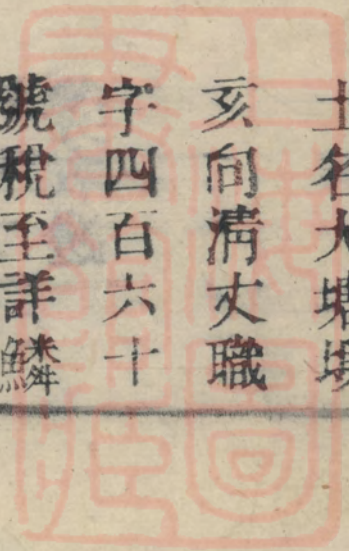 土名大塘坞
亥向清丈職
字四百六十
號稅至詳鱗